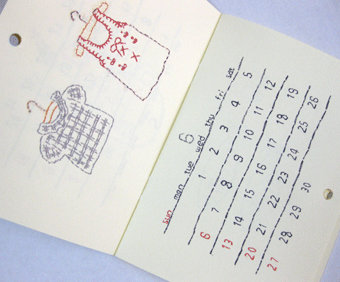 6
sun mon tue wed thu fri sat
1 2 3 4 5
6 7 8 9 10 11 12
13 14 15 16 17 18 19
20 21 22 23 24 25 26
27 28 29 30